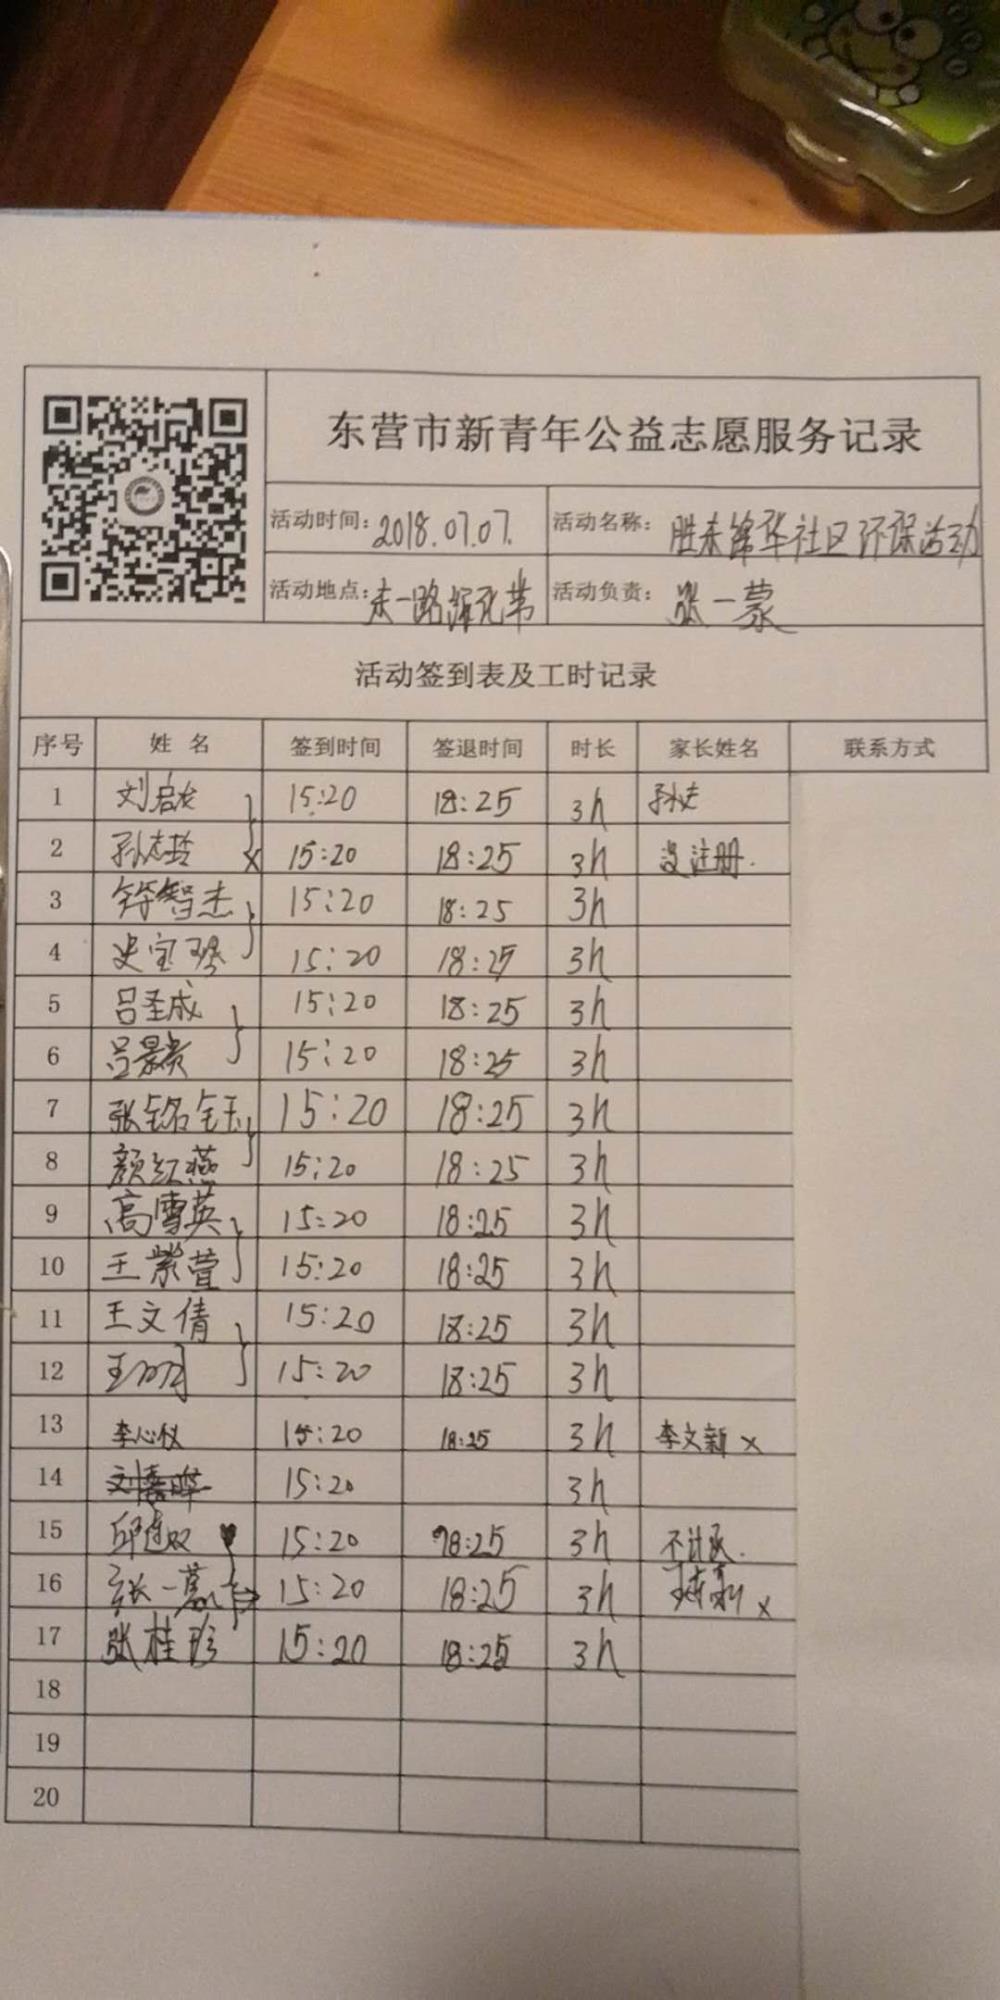 东营市新青年公益志愿服务记录
活动时间: 2018.07.07. 活动名称: 胜东锦华社区环保活动
活动地点: 东一路绿化带 活动负责: 张一蒙
活动签到表及工时记录
序号 姓名 签到时间 签退时间 时长 家长姓名 联系方式
1 刘启龙 15:20 18:25 3h
2 孙志玲 x 15:20 18:25 3h 没注册.
3 智杰 15:20 18:25 3h
4 史宝琴 15:20 18:25 3h
5 吕圣成 15:20 18:25 3h
6 吕景贵 15:20 18:25 3h
7 张铭钰 15:20 18:25 3h
8 颜红燕 15:20 18:25 3h
9 高雪英 15:20 18:25 3h
10 王紫萱 15:20 18:25 3h
11 王文倩 15:20 18:25 3h
12 王明 15:20 18:25 3h
13 李心仪 15:20 18:25 3h 李文新 x
14 15:20 3h
15 15:20 18:25 3h
16 张一蒙 15:20 18:25 3h x
17 张桂珍 15:20 18:25 3h
18
19
20